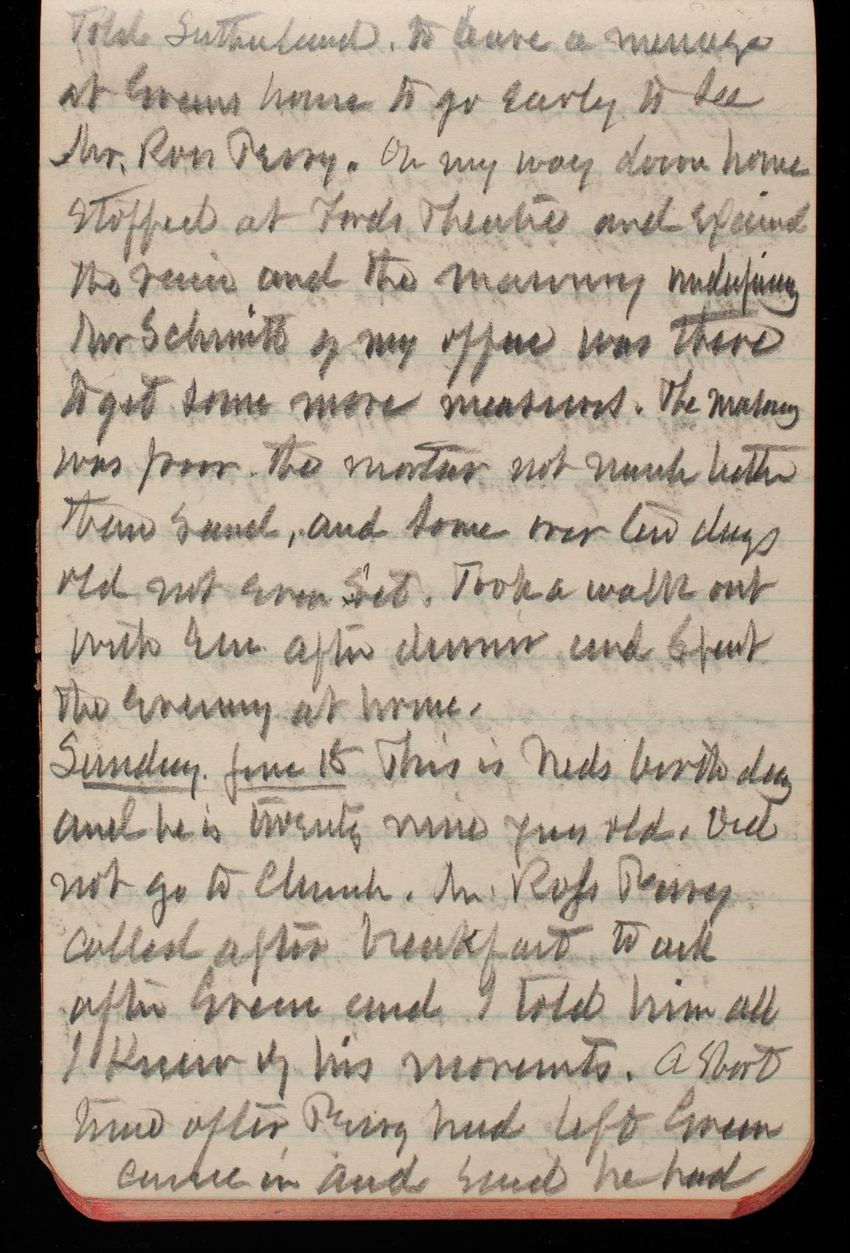 Told Sutherland. to leave a message
at Greens home to go early to see
Mr. Ross Perry. On my way down home
Stopped at Fords Theatre and Examd
the ruin and the masonry underpining
Mr Schmitt of my office was there
to get some more measures. The masonry
was poor. the mortar not much better
than sand, and some over ten days
old not even set. Took a walk out
with Em after dinner and spent
the evening at home.
Sunday. June 18 This is Neds birth day
and he is twenty nine years old. Did
not go to Church. Mr. Ross Perry
called after breakfast to ask
after Green and I told him all
I Knew of his movements. A short
time after Perry had left Green
came in and said he had